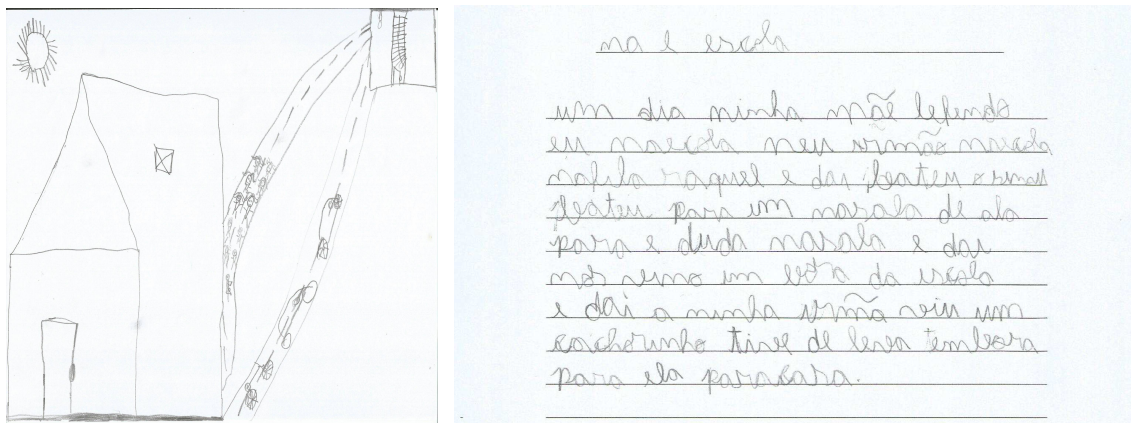 na e escola
um dia minha mãe lefendo
eu naescola meu irmão naescola
nafila raquel e dai beateu o sinal
beateu para um nasala de ala
para e duda nasala e dai
nos remo um bora da escola
e dai a minha irmã veiu um
cachorinho tive de leva tembora
para ela paracasa.